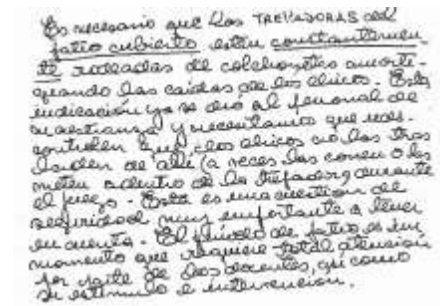 Es necesario que las TREPADORAS del
patio cubierto estén constantemen
te rodeadas de colchonetas amorti-
guando las caídas de los chicos. Esta
indicación ya se dió al personal de
maestranza y necesitamos que uds.
controlen que los chicos no las tras
laden de allí (a veces las corren o las
meten adentro de la trepadora) durante
el juego. Esta es una cuestión de
seguridad muy importante a tener
en cuenta. El período de patio es un
momento que requiere total atención
por parte de los docentes, así como
su estímulo e intervención.